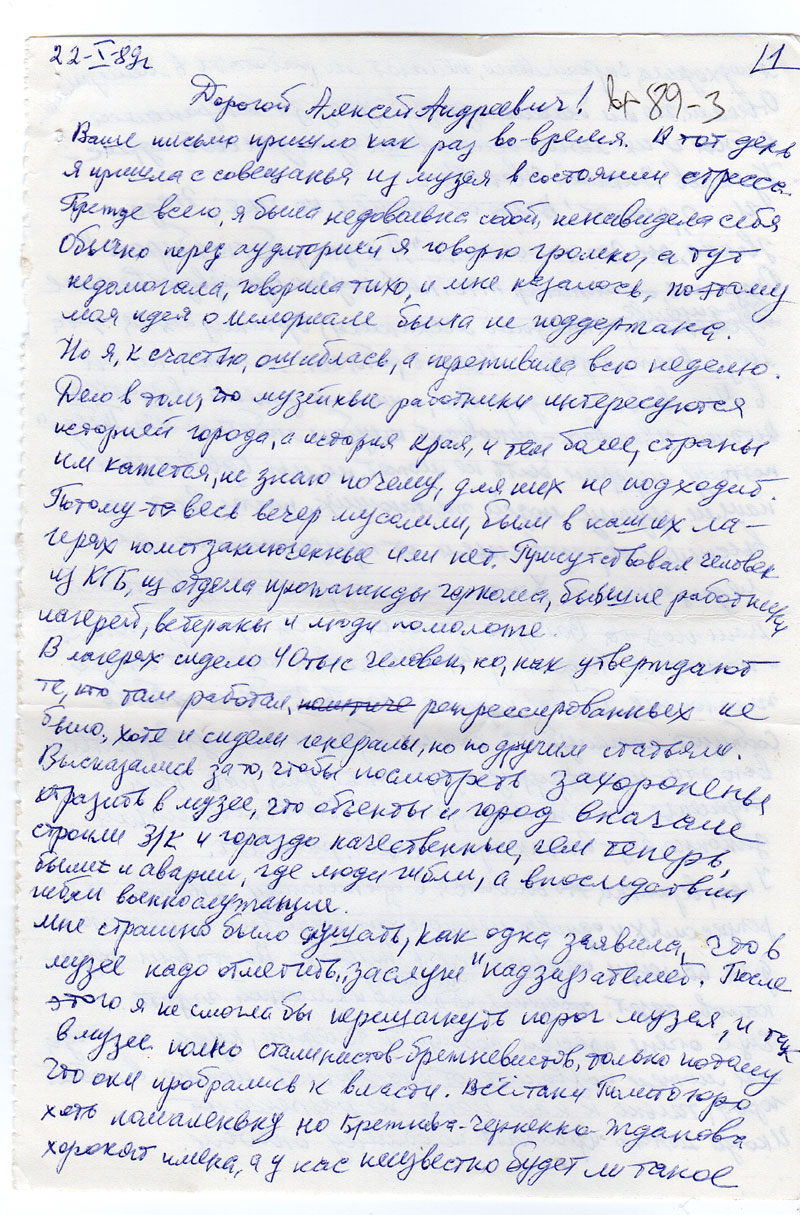 22-X-89г
11
Дорогой Алексей Андреевич! 89-3
Ваше письмо пришло как раз во-время. В тот день
я пришла с совещанья из музея в состоянии стресса.
Прежде всего, я была недовольна собой, ненавидела себя
Обычно перед аудиторией я говорю громко, а тут
недомогала, говорила тихо, и мне казалось, поэтому
моя идея о мемориале была не поддержана.
Но я, к счастью, ошиблась, а переживала всю неделю.
Дело в том, что музейные работники интересуются
историей города, а история края, и тем более, страны
им кажется, не знаю почему, для них не подходит.
Потому-то весь вечер мусолили, были в наших ла-
герях политзаключенные или нет. Присутствовал человек
из КГБ, из отдела пропаганды горкома, бывшие работники
лагерей, ветераны и люди помоложе.
В лагерях сидело 40 тыс человек, но, как утверждают
те, кто там работал, репрессированных не
было, хотя и сидели генералы, но по другим статьям.
Высказались за то, чтобы посмотреть захороненья
отразить в музее, что объекты и город вначале
строили З/К и гораздо качественные, чем теперь,
были и аварии, где люди гибли, а впоследствии
гибли военнослужащие.
Мне страшно было слушать, как одна заявила, что в
музее надо отметить „заслуги" надзирателей. После
этого я не смогла бы перешагнуть порог музея, и так
в музее полно сталинистов-брежневистов, только потому
что они пробрались к власти. Всё-таки Политбюро
хоть помаленьку но Брежнева-Черненко-Жданова
хоронят имена, а у нас неизвестно будет ли такое